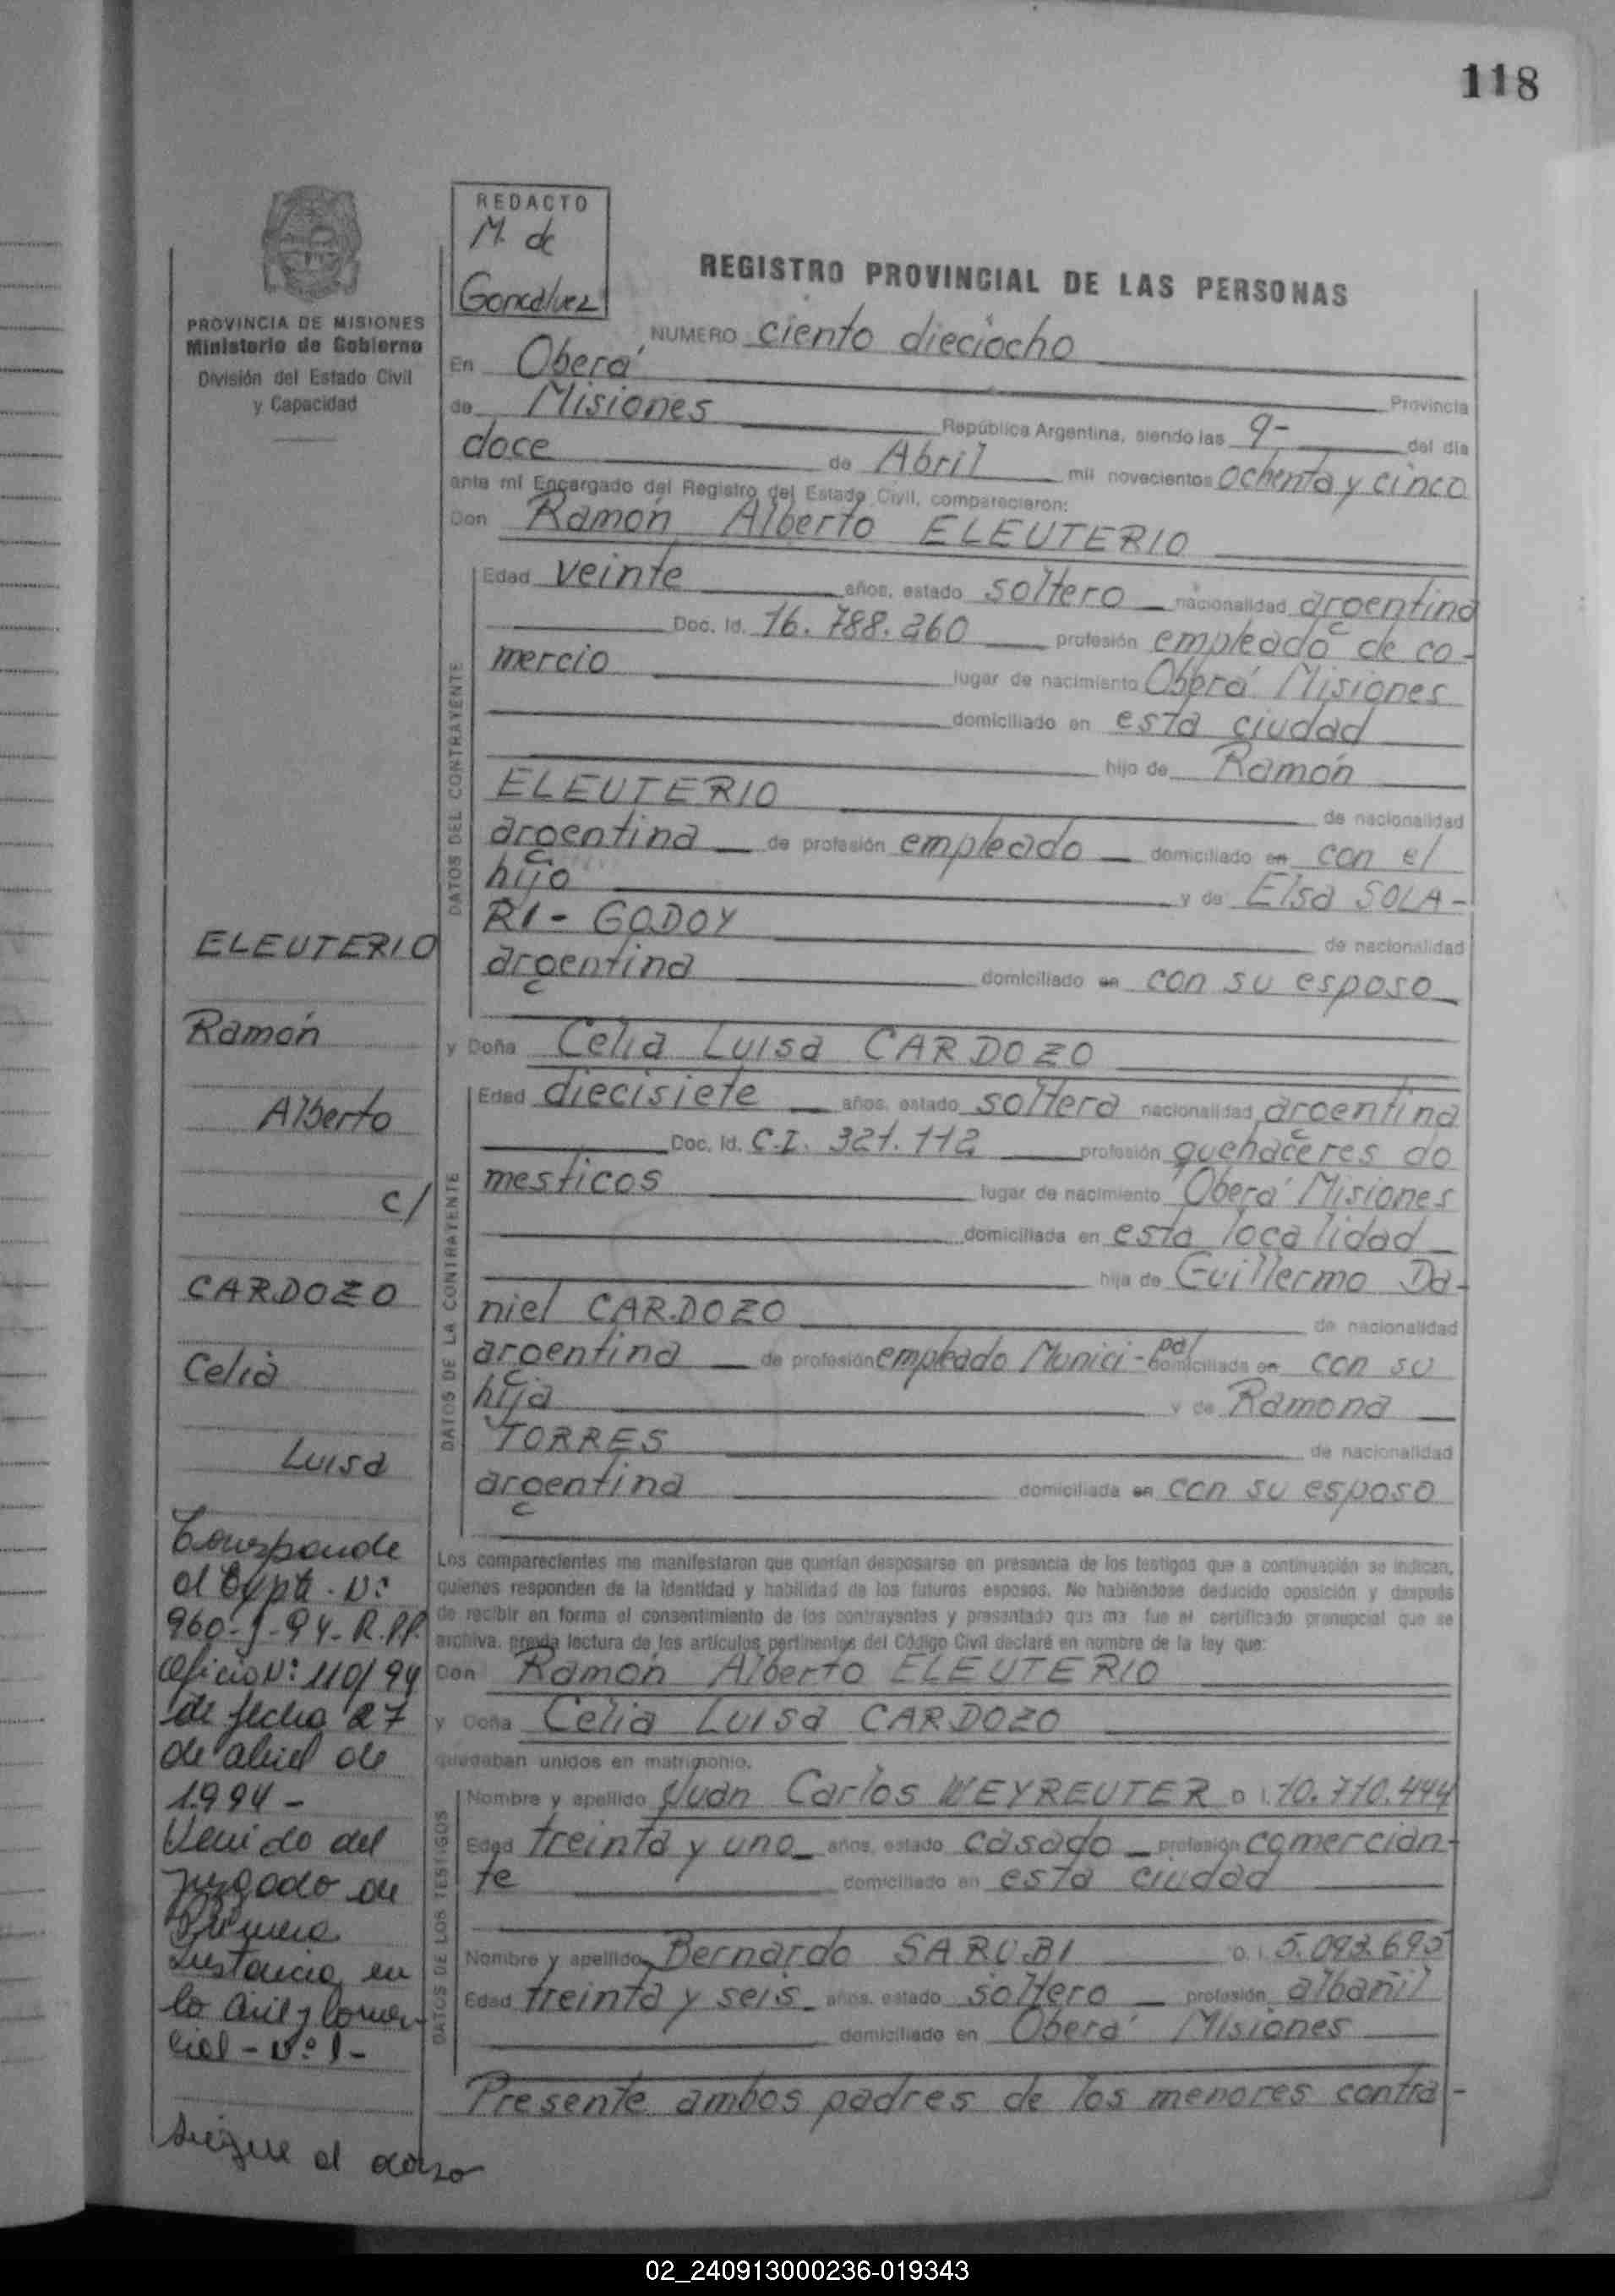 118
REDACTO
M. de
Goncalvez
PROVINCIA DE MISIONES
Ministerio de Gobierno
División del Estado Civil
y Capacidad
REGISTRO PROVINCIAL DE LAS PERSONAS
NUMERO ciento dieciocho
En Oberá Provincia
de Misiones República Argentina, siendo las 9- del día
doce de Abril mil novecientos ochenta y cinco
ante mí Encargado del Registro del Estado Civil, comparecieron:
Don Ramón Alberto ELEUTERIO
DATOS DEL CONTRAYENTE
Edad veinte años, estado soltero nacionalidad argentina
Doc. Id. 16.788.260 profesión empleado de co-
mercio lugar de nacimiento Oberá Misiones
domiciliado en esta ciudad
hijo de Ramón
ELEUTERIO de nacionalidad
argentina de profesión empleado domiciliado en con el
hijo y de Elsa SOLA-
RI - GODOY de nacionalidad
argentina domiciliado en con su esposo
y Doña Celia Luisa CARDOZO
DATOS DE LA CONTRAYENTE
Edad diecisiete años, estado soltera nacionalidad argentina
Doc. Id. C.I. 321.112 profesión quehaceres do
mesticos lugar de nacimiento Oberá Misiones
domiciliada en esta localidad
hija de Guillermo Da-
niel CARDOZO de nacionalidad
argentina de profesión empleado Munici-pal domiciliada en con su
hija y de Ramona
TORRES de nacionalidad
argentina domiciliada en con su esposo
Los comparecientes me manifestaron que querían desposarse en presencia de los testigos que a continuación se indican,
quienes responden de la identidad y habilidad de los futuros esposos. No habiéndose deducido oposición y después
de recibir en forma el consentimiento de los contrayentes y presentado que me fue el certificado prenupcial que se
archiva, previa lectura de los artículos pertinentes del Código Civil declaré en nombre de la ley que:
Don Ramón Alberto ELEUTERIO
y Doña Celia Luisa CARDOZO
quedaban unidos en matrimonio.
DATOS DE LOS TESTIGOS
Nombre y apellido Juan Carlos WEYREUTER D.I. 10.710.444
Edad treinta y uno años, estado casado profesión comercian-
te domiciliado en esta ciudad
Nombre y apellido Bernardo SARUBI D.I. 5.092.695
Edad treinta y seis años, estado soltero profesión albañil
domiciliado en Oberá Misiones
Presente ambos padres de los menores contra-
ELEUTERIO
Ramón
Alberto
c/
CARDOZO
Celia
Luisa
Corresponde
al Expte. Nº
960-J-94-R.P.P.
Oficio Nº 110/94
de fecha 27
de abril de
1994-
Venido del
Juzgado de
Primera
Instancia en
lo Civil y Comer-
cial - Nº 1-
Sigue al dorso
02_240913000236-019343